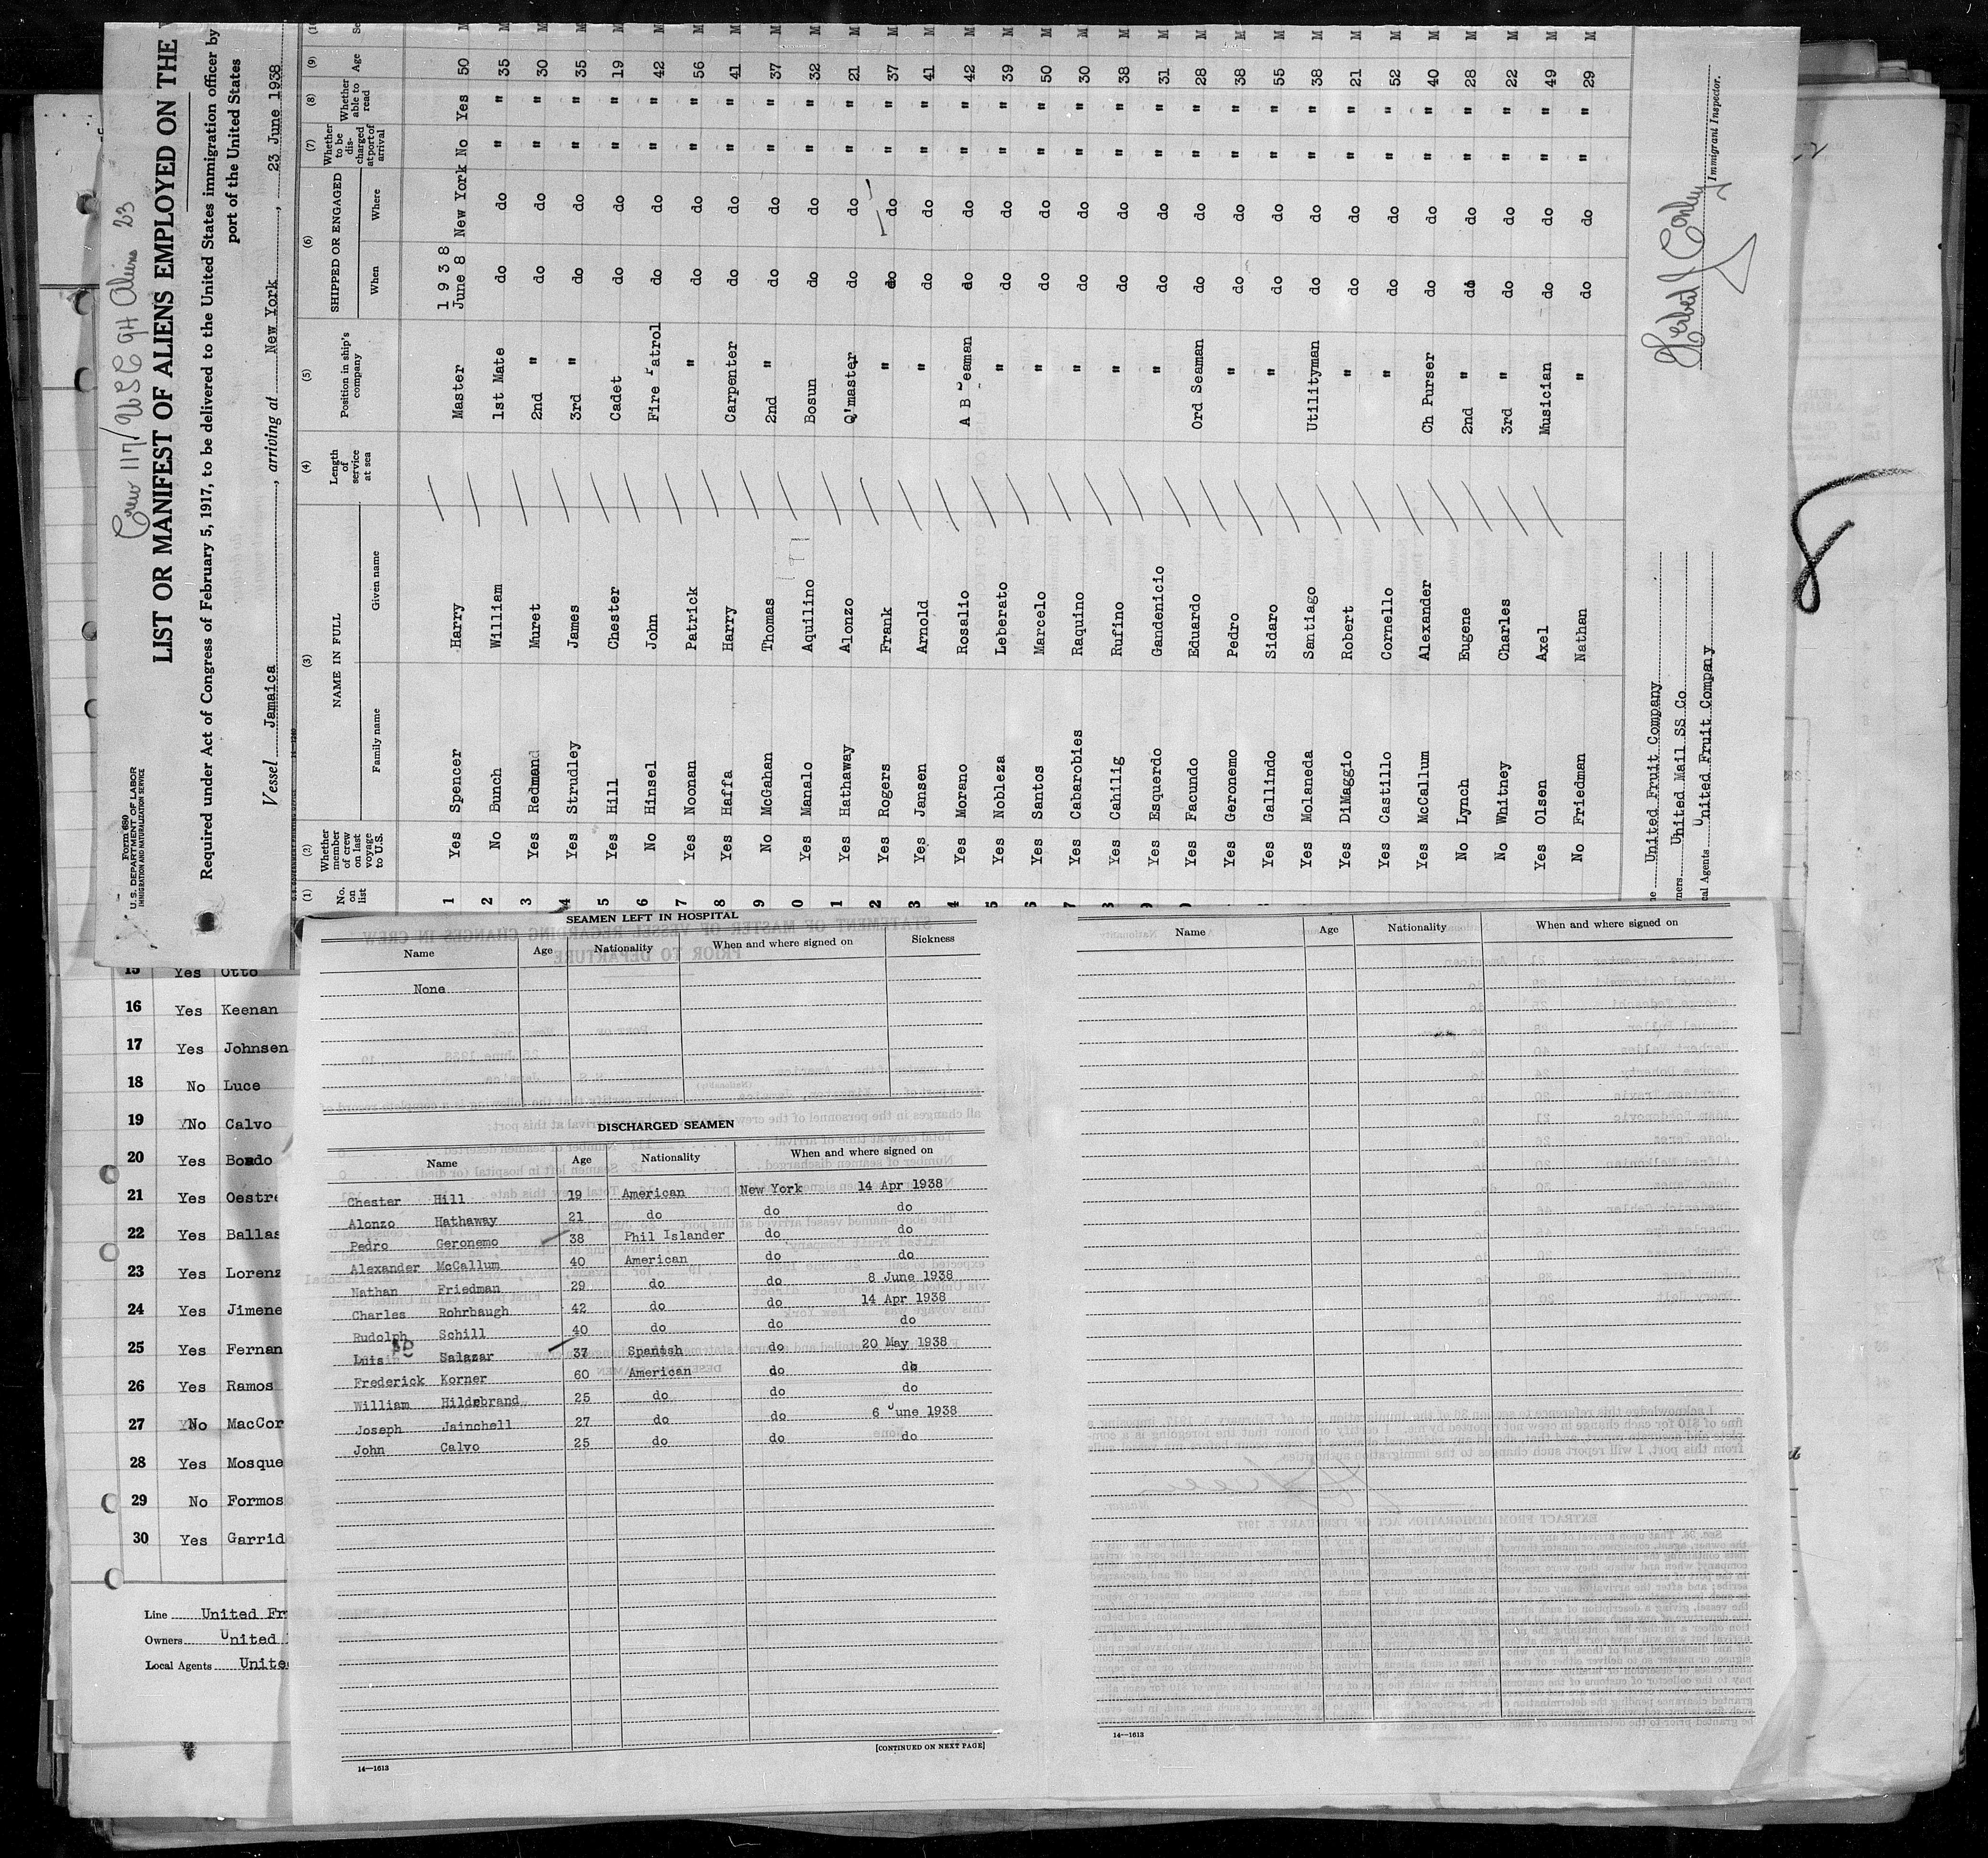 Crew 117/ USC 94 Aliens 23
Form 680
U. S. DEPARTMENT OF LABOR
IMMIGRATION AND NATURALIZATION SERVICE
LIST OR MANIFEST OF ALIENS EMPLOYED ON THE
Required under Act of Congress of February 5, 1917, to be delivered to the United States immigration officer by
port of the United States
Vessel Jamaica, arriving at New York, 23 June 1938
(1) (2) (3) (4) (5) (6) (7) (8) (9)
No. on list Whether member of crew on last voyage to U.S. NAME IN FULL Family name Given name Length of service at sea Position in ship's company SHIPPED OR ENGAGED When Where Whether to be discharged at port of arrival Whether able to read Age
1938
1 Yes Spencer Harry Master June 8 New York No Yes 50 M
2 No Bunch William 1st Mate do do " " 35 M
3 Yes Redmand Muret 2nd " do do " " 30 M
4 Yes Strudley James 3rd " do do " " 35 M
5 Yes Hill Chester Cadet do do " " 19 M
6 No Hinsel John Fire Patrol do do " " 42 M
7 Yes Noonan Patrick " do do " " 56 M
8 Yes Haffa Harry Carpenter do do " " 41 M
9 No McGahan Thomas 2nd " do do " " 37 M
0 Yes Manalo Aquilino Bosun do do " " 32 M
1 Yes Hathaway Alonzo Q'master do do " " 21 M
2 Yes Rogers Frank " do do " " 37 M
3 Yes Jansen Arnold " do do " " 41 M
4 Yes Morano Rosalio A B Seaman do do " " 42 M
5 Yes Nobleza Leberato " do do " " 39 M
6 Yes Santos Marcelo " do do " " 50 M
7 Yes Cabarobies Raquino " do do " " 30 M
8 Yes Cahilig Rufino " do do " " 38 M
9 Yes Esquerdo Gandenicio " do do " " 31 M
Yes Facundo Eduardo Ord Seaman do do " " 28 M
Yes Geronemo Pedro " do do " " 38 M
Yes Gallindo Sidaro " do do " " 55 M
Yes Molaneda Santiago Utilityman do do " " 38 M
Yes DiMaggio Robert " do do " " 21 M
Yes Castillo Cornello " do do " " 52 M
Yes McCallum Alexander Ch Purser do do " " 40 M
No Lynch Eugene 2nd " do do " " 28 M
No Whitney Charles 3rd " do do " " 22 M
Yes Olsen Axel Musician do do " " 49 M
No Friedman Nathan " do do " " 29 M
United Fruit Company
United Mail SS Co
Agents United Fruit Company
Herbert J Conley
Immigrant Inspector.
8
15 Yes Otto
16 Yes Keenan
17 Yes Johnsen
18 No Luce
19 No Calvo
20 Yes Bondo
21 Yes Oestre
22 Yes Ballas
23 Yes Lorenz
24 Yes Jimene
25 Yes Fernan
26 Yes Ramos
27 No MacCor
28 Yes Mosque
29 No Formos
30 Yes Garrid
Line United Fr
Owners United
Local Agents Unite
SEAMEN LEFT IN HOSPITAL
Name Age Nationality When and where signed on Sickness
None
DISCHARGED SEAMEN
Name Age Nationality When and where signed on
Chester Hill 19 American New York 14 Apr 1938
Alonzo Hathaway 21 do do do
Pedro Geronemo 38 Phil Islander do do
Alexander McCallum 40 American do do
Nathan Friedman 29 do do 8 June 1938
Charles Rohrbaugh 42 do do 14 Apr 1938
Rudolph Schill 40 do do do
Luis Salazar 37 Spanish do 20 May 1938
Frederick Korner 60 American do do
William Hildebrand 25 do do do
Joseph Jainchell 27 do do 6 June 1938
John Calvo 25 do do do
[CONTINUED ON NEXT PAGE]
14—1613
Name Age Nationality When and where signed on
14—1613